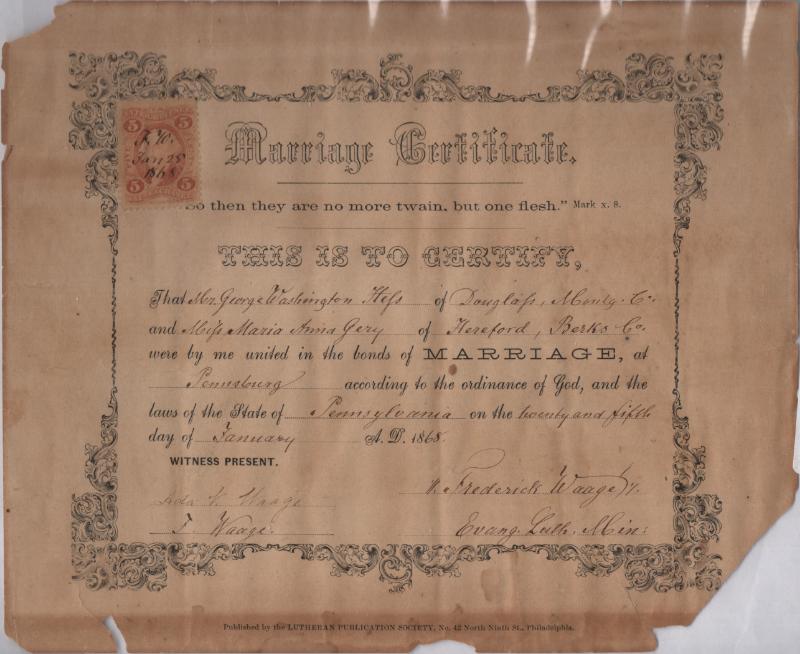 5 5
F. W.
Jan 25
1868
5 5
Marriage Certificate.
"So then they are no more twain, but one flesh." Mark x. 8.
THIS IS TO CERTIFY,
That Mr. George Washington Hess of Douglass, Montg. Co.
and Miss Maria Anna Gery of Hereford, Berks Co.
were by me united in the bonds of MARRIAGE, at
Pennsburg according to the ordinance of God, and the
laws of the State of Pennsylvania on the twenty and fifth
day of January A. D. 1868.
WITNESS PRESENT.
Frederick Waage
Ada V. Waage
T. Waage.
Evang. Luth. Min:
Published by the LUTHERAN PUBLICATION SOCIETY, No. 42 North Ninth St., Philadelphia.